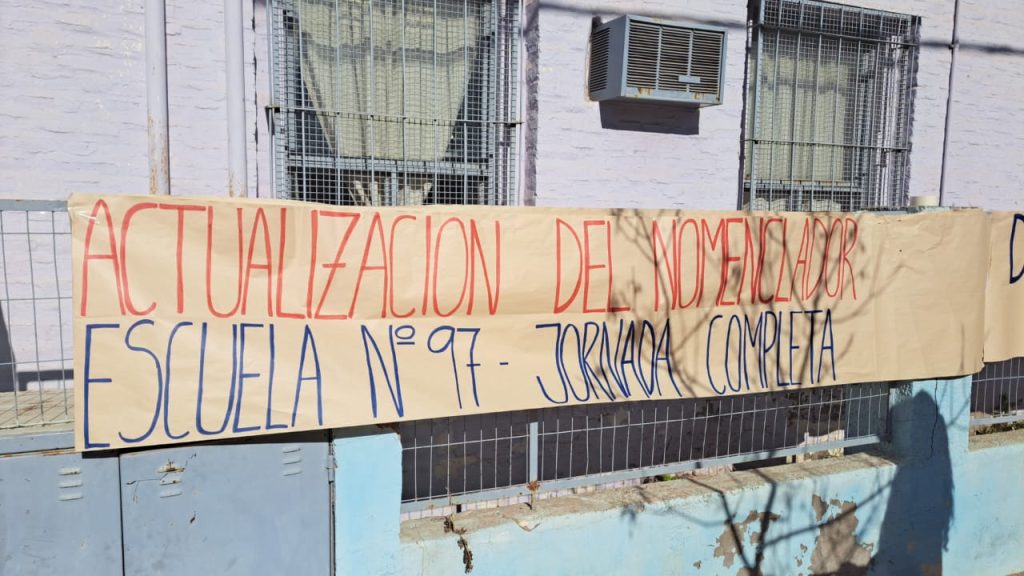 ACTUALIZACION DEL NOMENCLADOR
ESCUELA Nº 97 - JORNADA COMPLETA